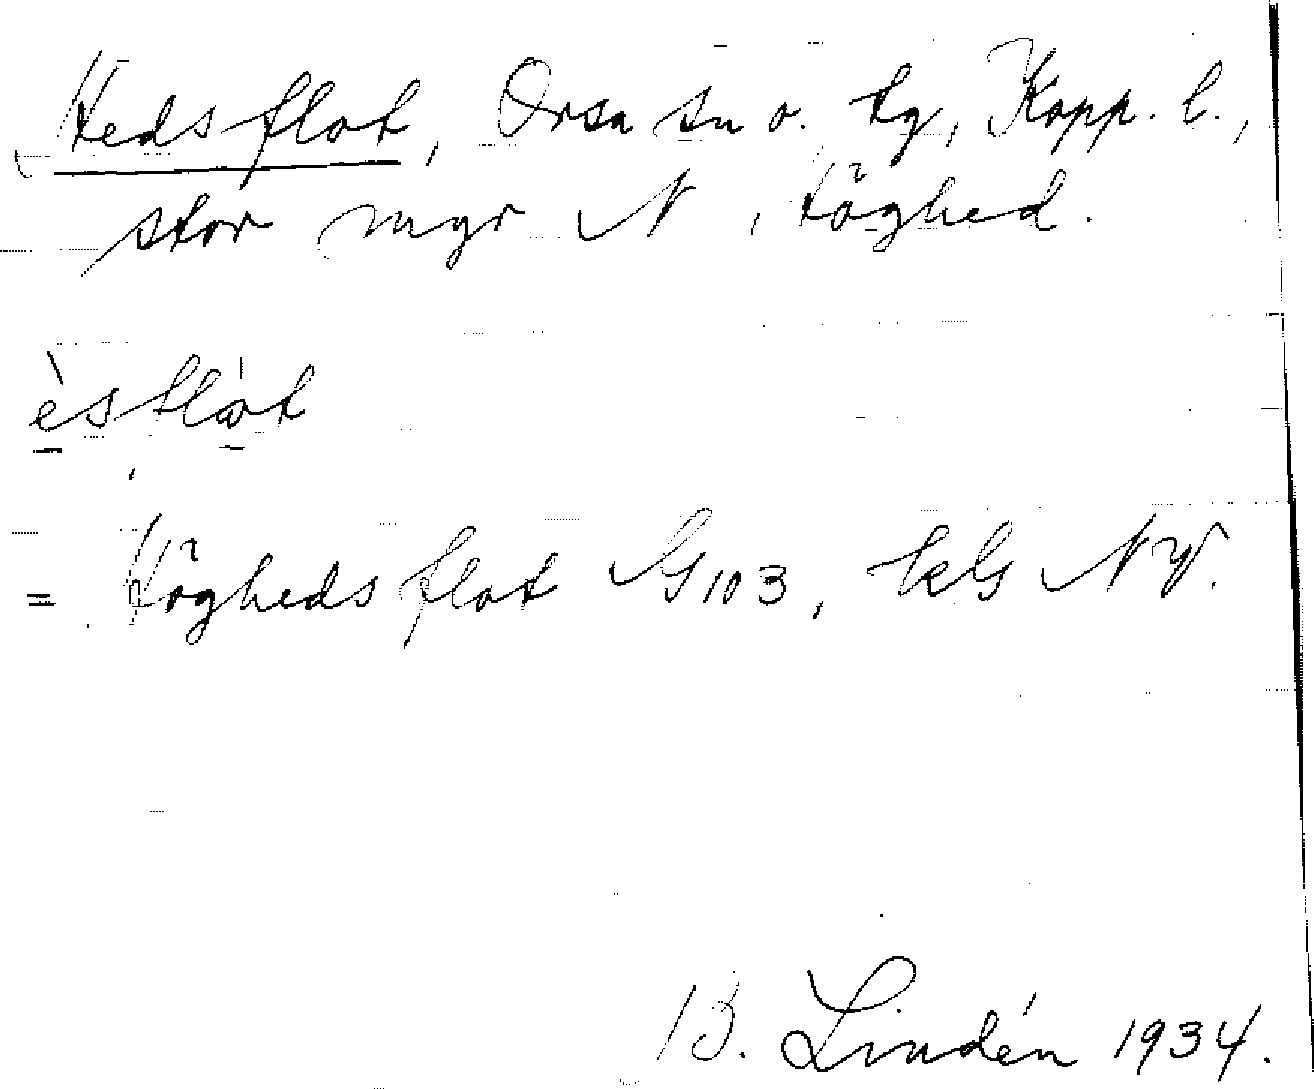 Hedsflot, Orsa sn o. tg, Kopp. l.,
stor myr N , Höghed.
èsflòt
= Höghedsflot G 103, kG NV.
B. Lindén 1934.